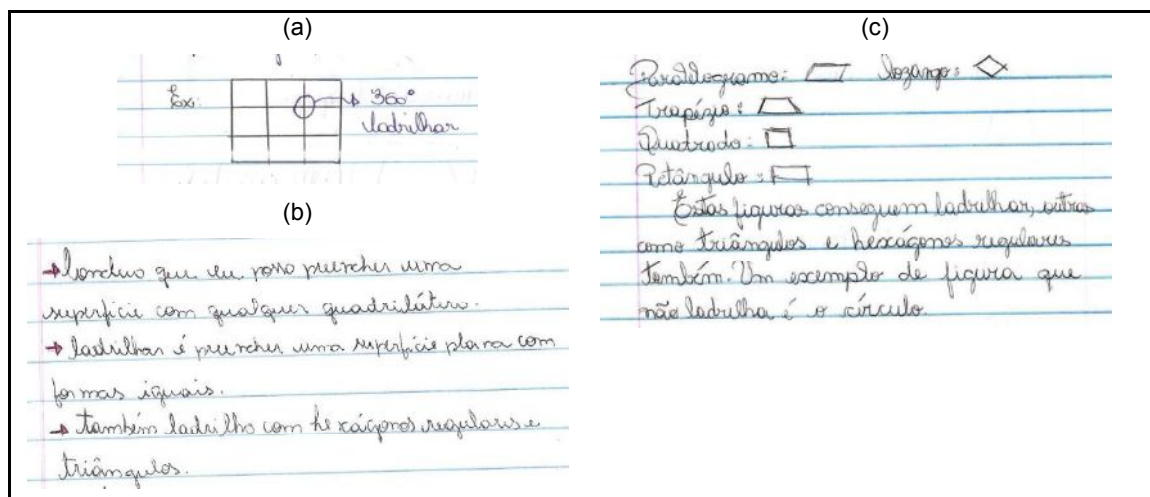 (a)
Ex: 360°
ladrilhar
(b)
→ Concluo que eu posso preencher uma
superfície com qualquer quadrilátero.
→ ladrilhar é preencher uma superfície plana com
formas iguais.
→ também ladrilho com hexágonos regulares e
triângulos.
(c)
Paralelogramo: lozango:
Trapézio:
Quadrado:
Retângulo:
Estas figuras conseguem ladrilhar, outras
como triângulos e hexágonos regulares
também. Um exemplo de figura que
não ladrilha é o círculo.